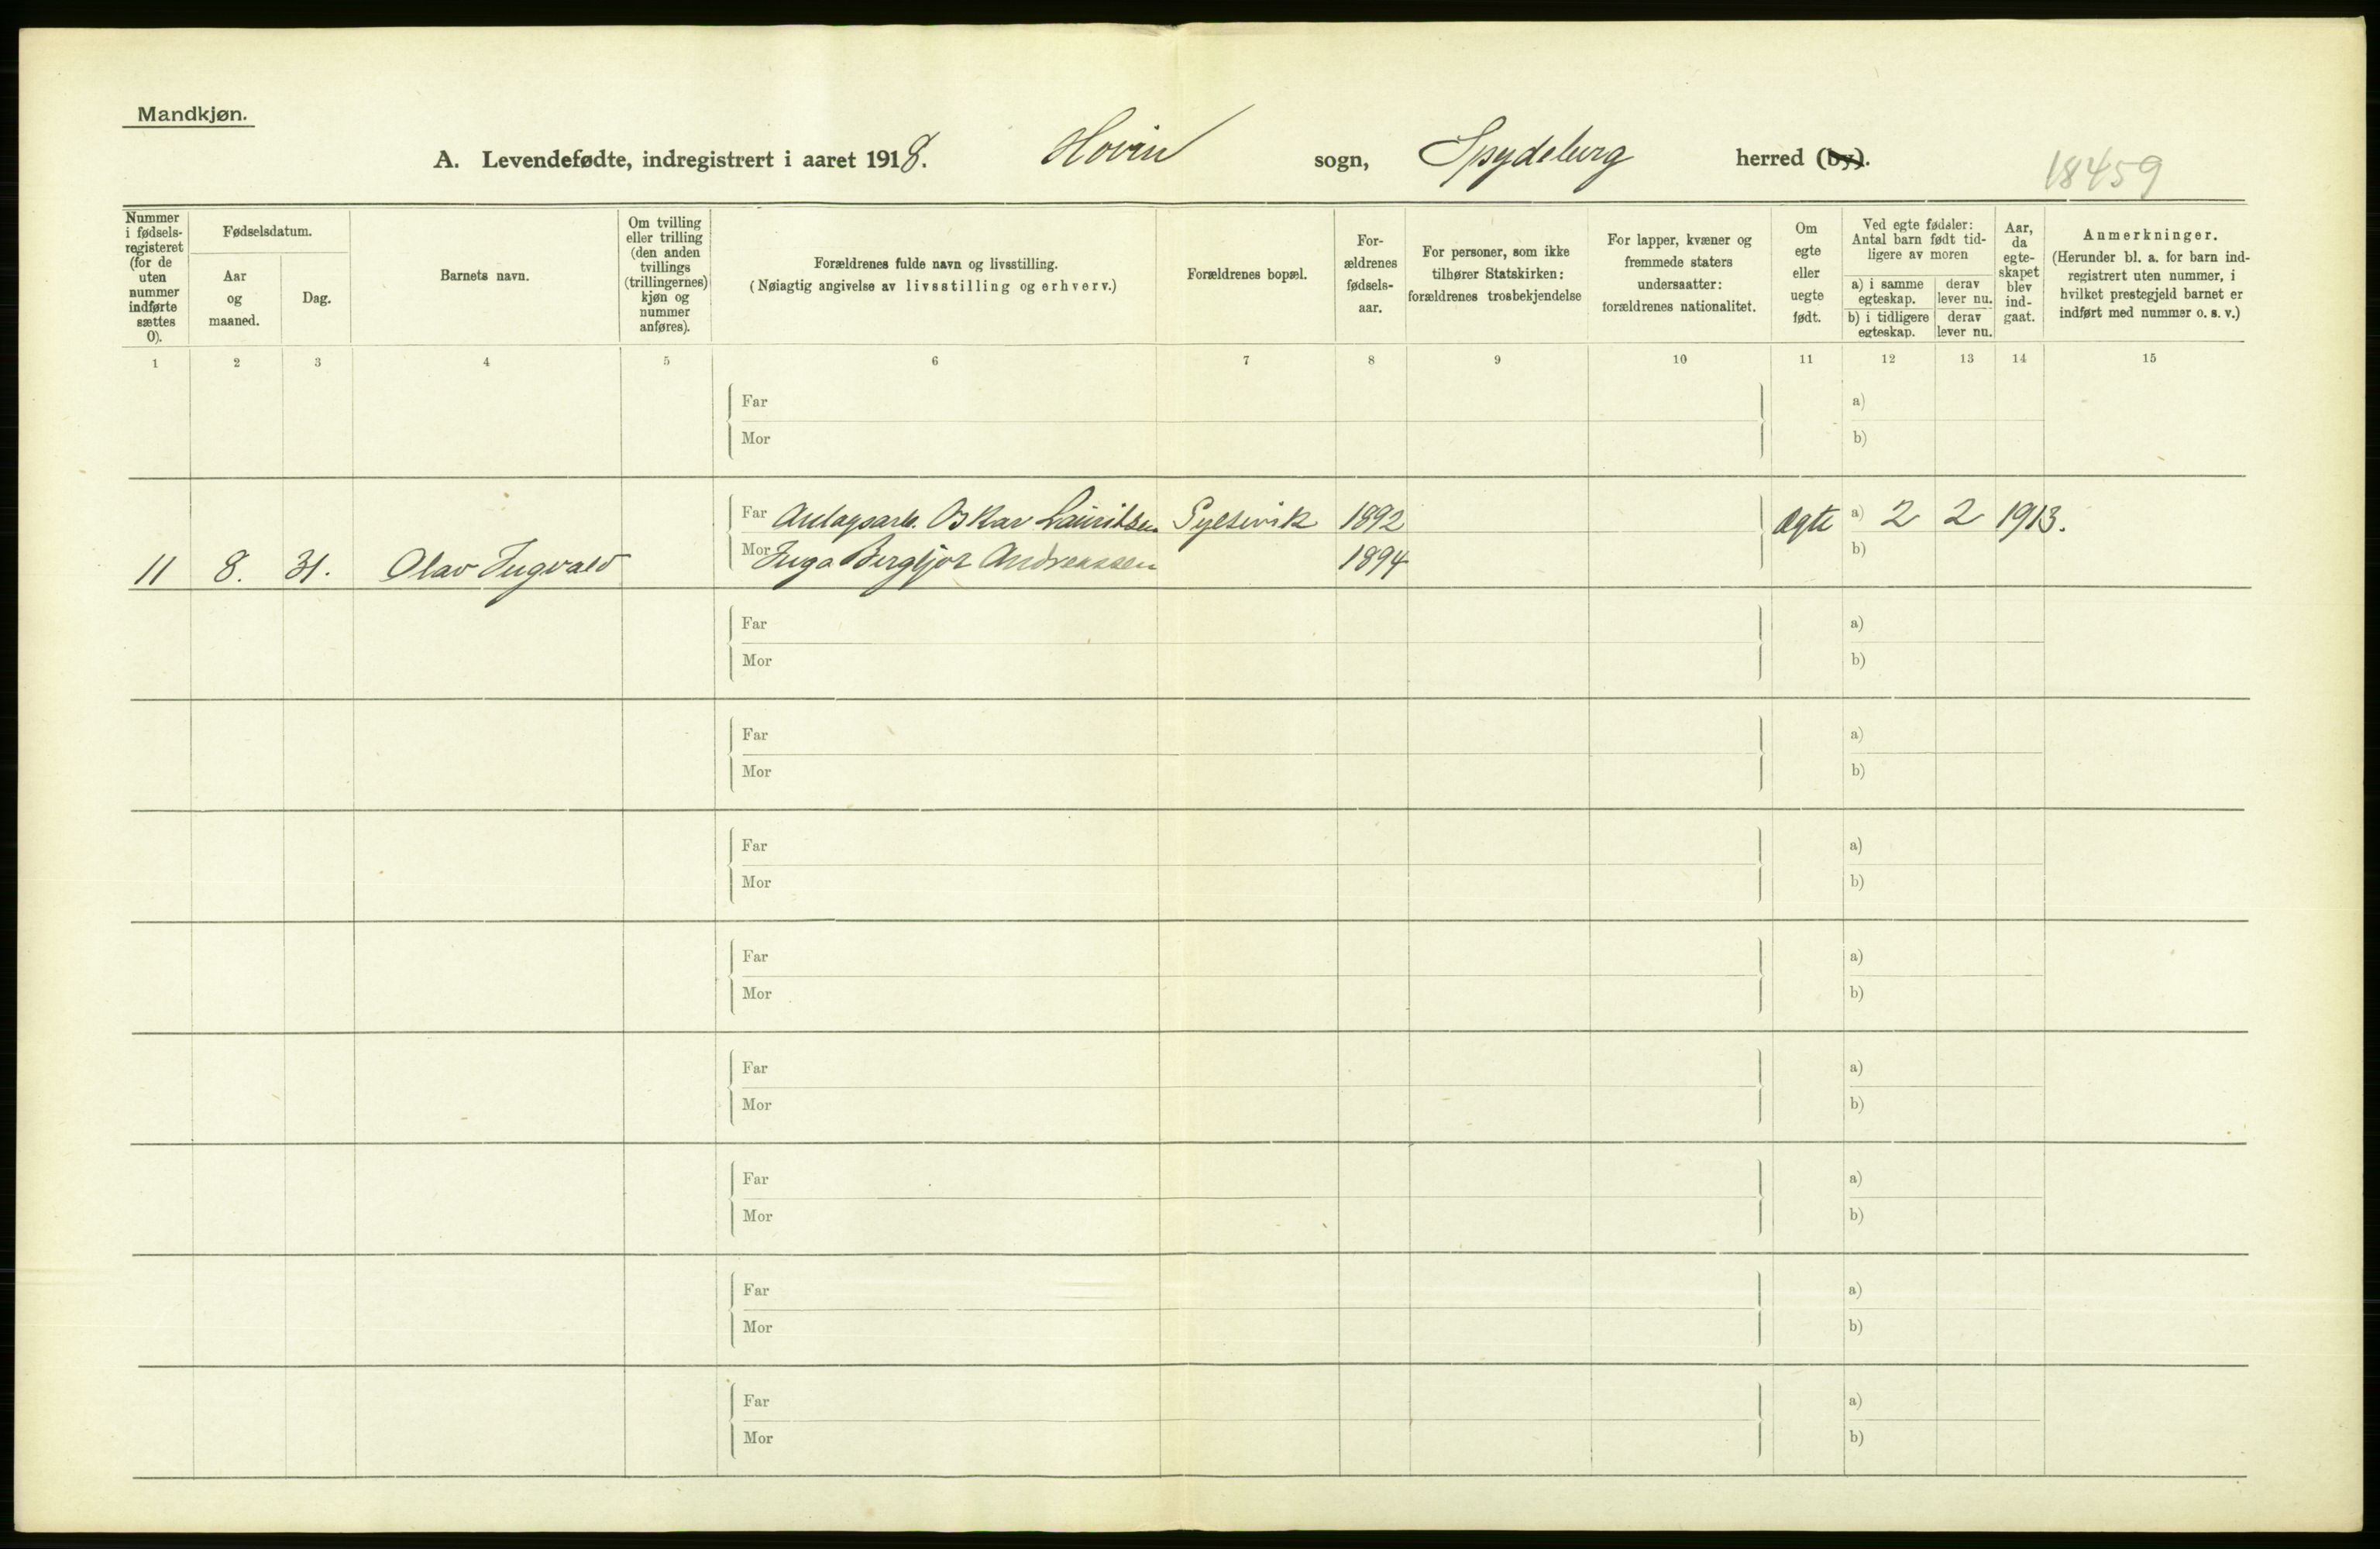 Mandkjøn.
A. Levendefødte, indregistrert i aaret 1918. Hovin sogn, Spydeberg herred (by).
18459
Nummer i fødsels-registeret (for de uten nummer indførte sættes 0).
Fødselsdatum.
Aar og maaned.
Dag.
Barnets navn.
Om tvilling eller trilling (den anden tvillings (trillingernes) kjøn og nummer anføres).
Forældrenes fulde navn og livsstilling.
(Nøiagtig angivelse av livsstilling og erhverv.)
Forældrenes bopæl.
For-ældrenes fødsels-aar.
For personer, som ikke tilhører Statskirken: forældrenes trosbekjendelse
For lapper, kvæner og fremmede staters undersaatter: forældrenes nationalitet.
Om egte eller uegte født.
Ved egte fødsler: Antal barn født tid-ligere av moren
a) i samme egteskap.
derav lever nu.
b) i tidligere egteskap.
derav lever nu.
Aar, da egte-skapet blev ind-gaat.
Anmerkninger.
(Herunder bl. a. for barn ind-registrert uten nummer, i hvilket prestegjeld barnet er indført med nummer o. s. v.)
1 2 3 4 5 6 7 8 9 10 11 12 13 14 15
Far a)
Mor b)
Far Anlagsarb. Oskar Lauritsen 1892 Ægte a) 2 2 1913.
Mor Inga Bergljot Andreassen 1894 b)
11 8. 31. Olav Ingvald
Far a)
Mor b)
Far a)
Mor b)
Far a)
Mor b)
Far a)
Mor b)
Far a)
Mor b)
Far a)
Mor b)
Far a)
Mor b)
Far a)
Mor b)